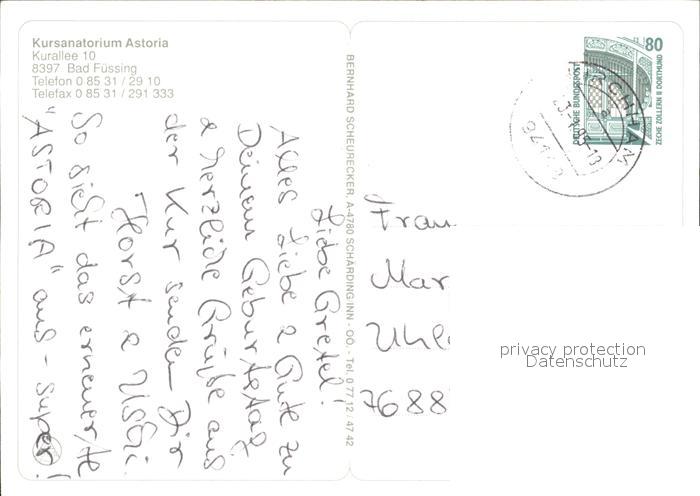 Kursanatorium Astoria
Kurallee 10
8397 Bad Füssing
Telefon 0 85 31 / 29 10
Telefax 0 85 31 / 291 333
Liebe Gretel!
Alles Liebe & Gute zu
Deinem Geburtstag
& herzliche Grüße aus
der Kur senden Dir
Horst & Uschi.
So sieht das erneuerte
"ASTORIA" aus - super!
BERNHARD SCHEURECKER, A-4780 SCHÄRDING/INN - OÖ. - Tel. 0 77 12 / 47 42
80
DEUTSCHE BUNDESPOST
ZECHE ZOLLERN II DORTMUND
Frau
Mar
Uhl
7688
privacy protection
Datenschutz